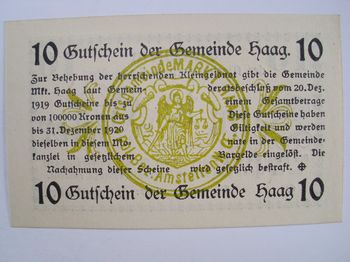 10 Gutschein der Gemeinde Haag. 10
Zur Behebung der herrschenden Kleingeldnot gibt die Gemeinde
Mkt. Haag laut Gemein deratsbeschluß vom 20. Dez.
1919 Gutscheine bis zu einem Gesamtbetrage
von 100000 Kronen aus Diese Gutscheine haben
bis 31. Dezember 1920 Giltigkeit und werden
dieselben in dieser nann in der Gemeinde-
kanzlei in gesetzlichem Bargelde eingelöst. Die
Nachahmung dieser Scheine wird gesetzlich bestraft.
10 Gutschein der Gemeinde Haag 10
MARKT
Amstetten
K K